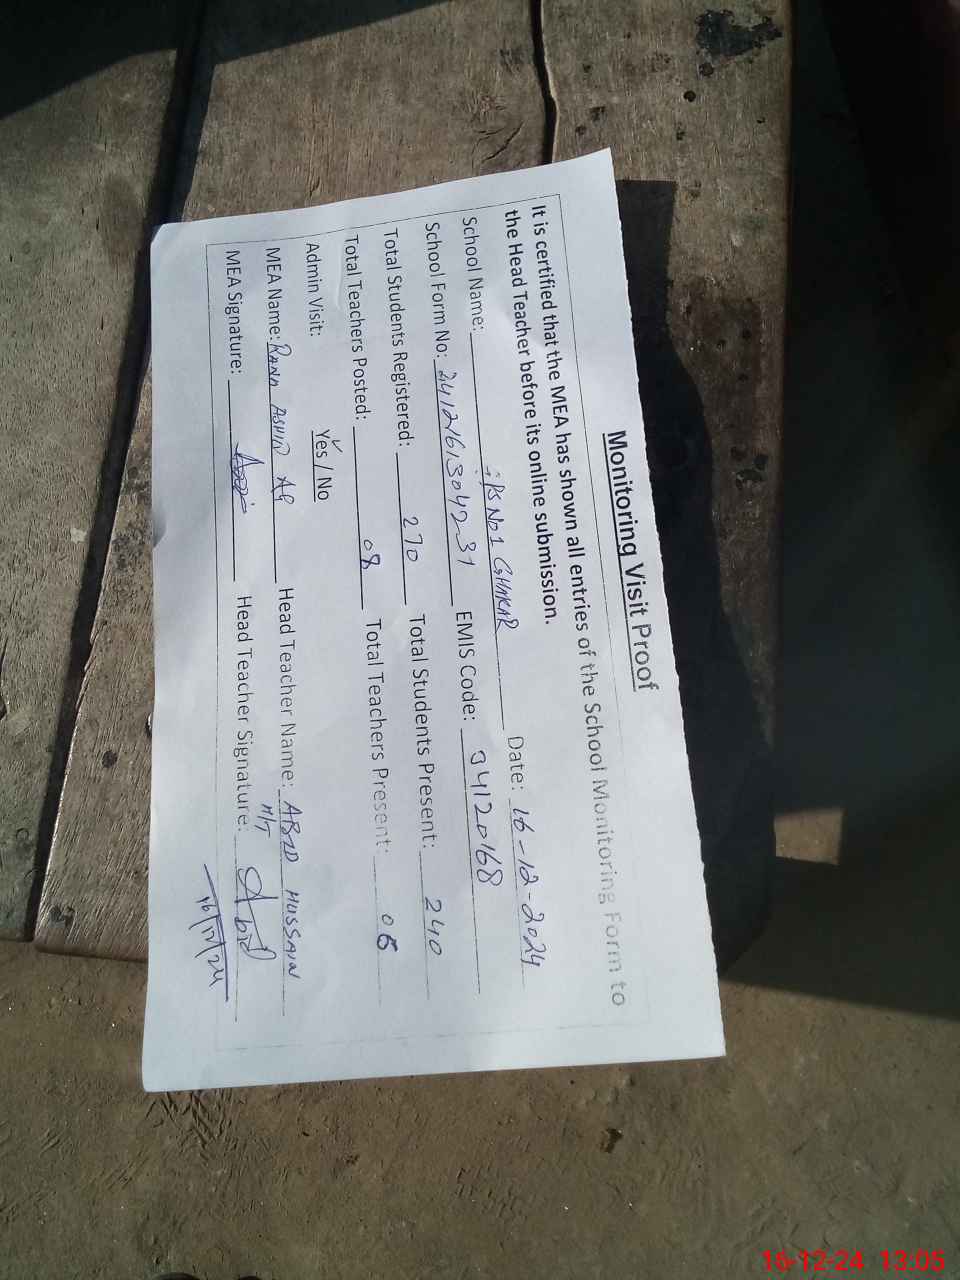 Monitoring Visit Proof
It is certified that the MEA has shown all entries of the School Monitoring Form to
the Head Teacher before its online submission.
School Name: PS No1 GHAKAR Date: 16-12-2024
School Form No: 2412161304231 EMIS Code: 34120168
Total Students Registered: 270 Total Students Present: 240
Total Teachers Posted: 08 Total Teachers Present: 06
Admin Visit: Yes / No
MEA Name: RANA Head Teacher Name: ABID HUSSAIN
MEA Signature: Head Teacher Signature: Abid
16/12/24
16-12-24 13:05